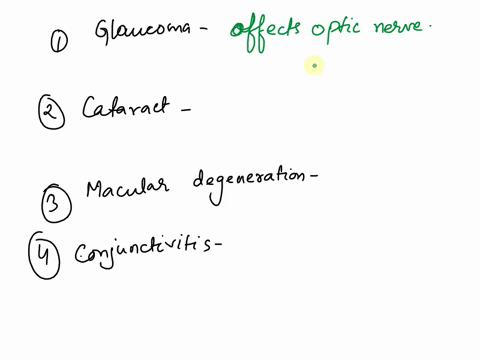 ① Glaucoma - affects optic nerve.
② Cataract -
③ Macular degeneration -
④ Conjunctivitis -